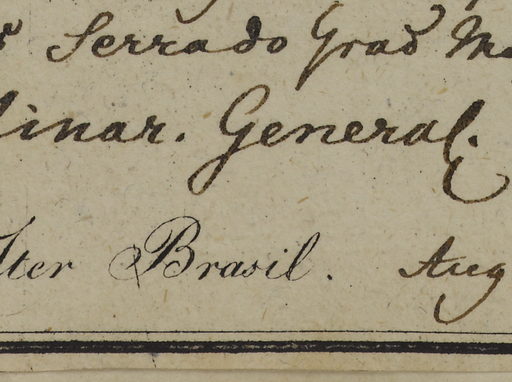 Serrado Grao
inar. General.
Iter Brasil. Aug